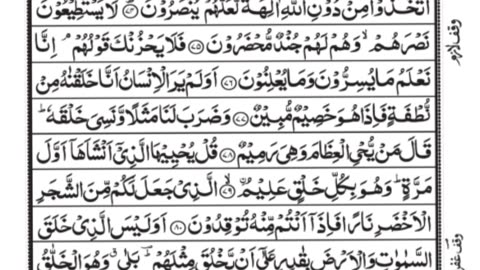 اتَّخَذُوْا مِنْ دُوْنِ اللّٰهِ اٰلِهَةً لَّعَلَّهُمْ يُنْصَرُوْنَ ۝۷۴ لَا يَسْتَطِيْعُوْنَ
نَصْرَهُمْ ۙ وَهُمْ لَهُمْ جُنْدٌ مُّحْضَرُوْنَ ۝۷۵ فَلَا يَحْزُنْكَ قَوْلُهُمْ ۘ اِنَّا
نَعْلَمُ مَا يُسِرُّوْنَ وَمَا يُعْلِنُوْنَ ۝۷۶ اَوَلَمْ يَرَ الْاِنْسَانُ اَنَّا خَلَقْنٰهُ مِنْ
نُّطْفَةٍ فَاِذَا هُوَ خَصِيْمٌ مُّبِيْنٌ ۝۷۷ وَضَرَبَ لَنَا مَثَلًا وَّنَسِيَ خَلْقَهٗ ؕ
قَالَ مَنْ يُّحْيِ الْعِظَامَ وَهِيَ رَمِيْمٌ ۝۷۸ قُلْ يُحْيِيْهَا الَّذِيْۤ اَنْشَاَهَاۤ اَوَّلَ
مَرَّةٍ ؕ وَهُوَ بِكُلِّ خَلْقٍ عَلِيْمٌ ۝۷۹ الَّذِيْ جَعَلَ لَكُمْ مِّنَ الشَّجَرِ
الْاَخْضَرِ نَارًا فَاِذَاۤ اَنْتُمْ مِّنْهُ تُوْقِدُوْنَ ۝۸۰ اَوَلَيْسَ الَّذِيْ خَلَقَ
السَّمٰوٰتِ وَالْاَرْضَ بِقٰدِرٍ عَلٰۤى اَنْ يَّخْلُقَ مِثْلَهُمْ ؕ بَلٰى ۗ وَهُوَ الْخَلّٰقُ
وقف لازم